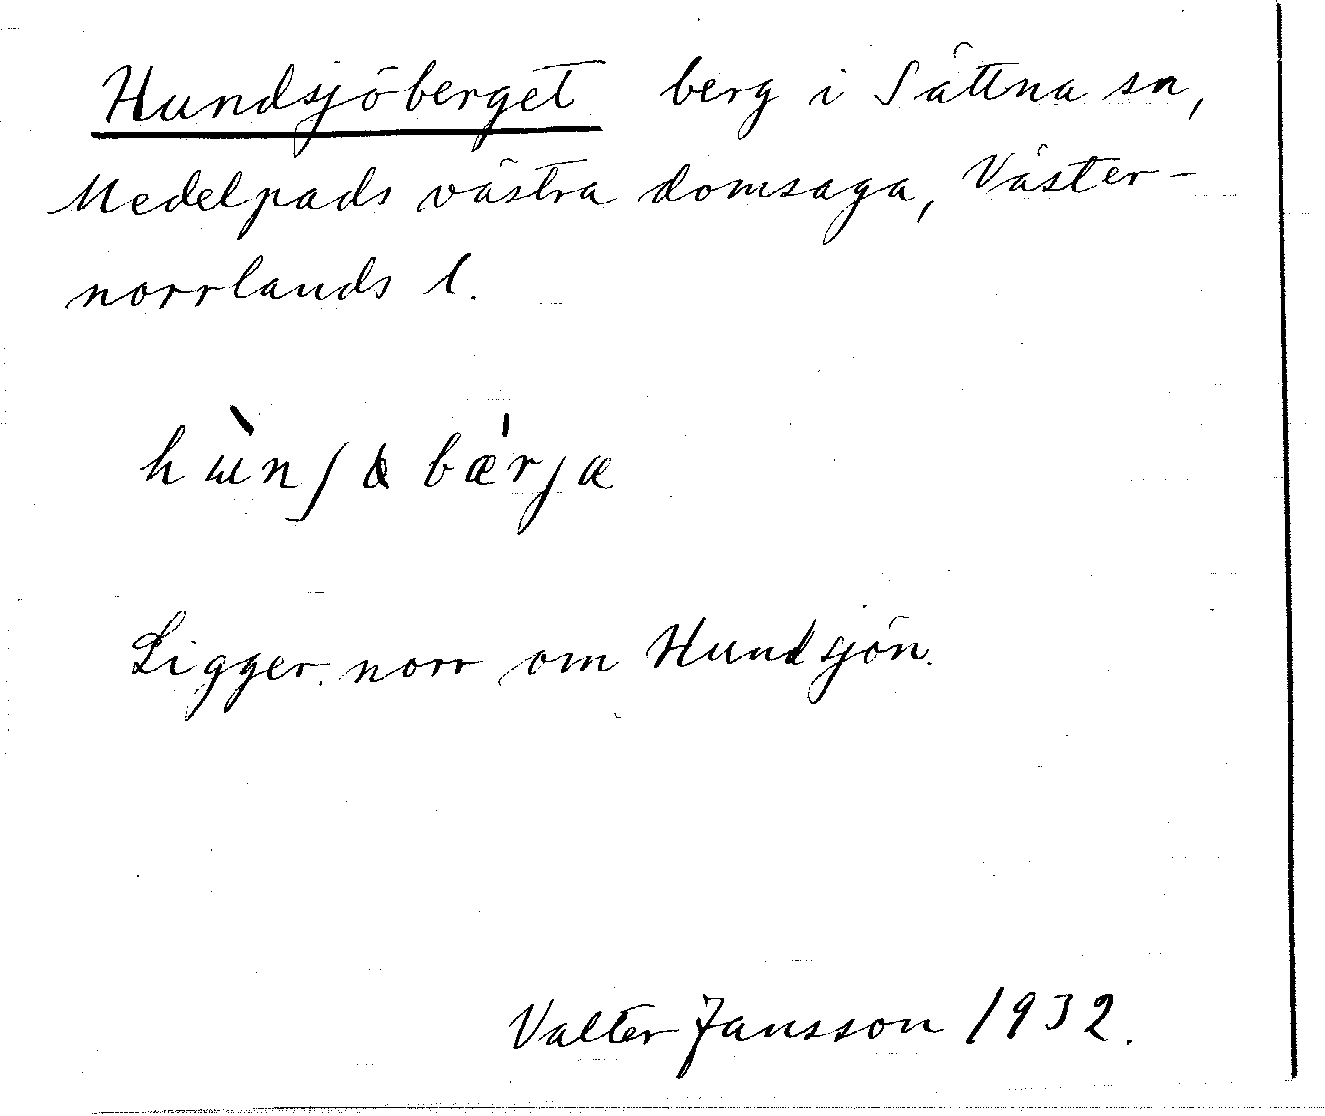 Hundsjöberget berg i Sättna sn,
Medelpads västra domsaga, Väster-
norrlands l.
Ligger norr om Hundsjön.
Valter Jansson 1932.